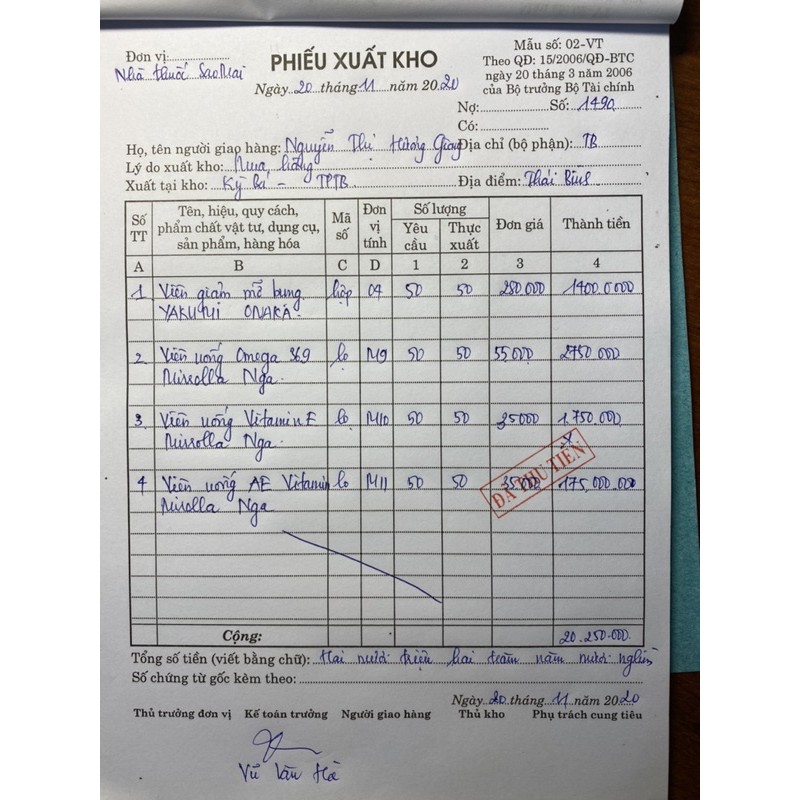 Đơn vị:
Nhà thuốc Sao Mai
PHIẾU XUẤT KHO
Ngày 20 tháng 11 năm 2020
Mẫu số: 02-VT
Theo QĐ: 15/2006/QĐ-BTC
ngày 20 tháng 3 năm 2006
của Bộ trưởng Bộ Tài chính
Nợ: Số: 1490
Có:
Họ, tên người giao hàng: Nguyễn Thị Hương Giang Địa chỉ (bộ phận): TB
Lý do xuất kho: Mua hàng
Xuất tại kho: Kỳ Bá - TPTB Địa điểm: Thái Bình
Số TT Tên, hiệu, quy cách, phẩm chất vật tư, dụng cụ, sản phẩm, hàng hóa Mã số Đơn vị tính Số lượng Yêu cầu Thực xuất Đơn giá Thành tiền
A B C D 1 2 3 4
1 Viên giảm mỡ bụng hộp 04 50 50 280.000 1400.0000
YAKUJI ONAKA
2 Viên uống Omega 369 lọ M9 50 50 55,000 2750 000
Mirrolla Nga
3 Viên uống Vitamin E lọ M10 50 50 35000 1.750.000
Mirrolla Nga
4 Viên uống AE Vitamin lọ M11 50 50 35000 175,000.000
Mirrolla Nga
ĐÃ THU TIỀN
Cộng: 20.250.000
Tổng số tiền (viết bằng chữ): Hai mươi triệu hai trăm năm mươi nghìn
Số chứng từ gốc kèm theo:
Ngày 20 tháng 11 năm 2020
Thủ trưởng đơn vị Kế toán trưởng Người giao hàng Thủ kho Phụ trách cung tiêu
Vũ Văn Hà